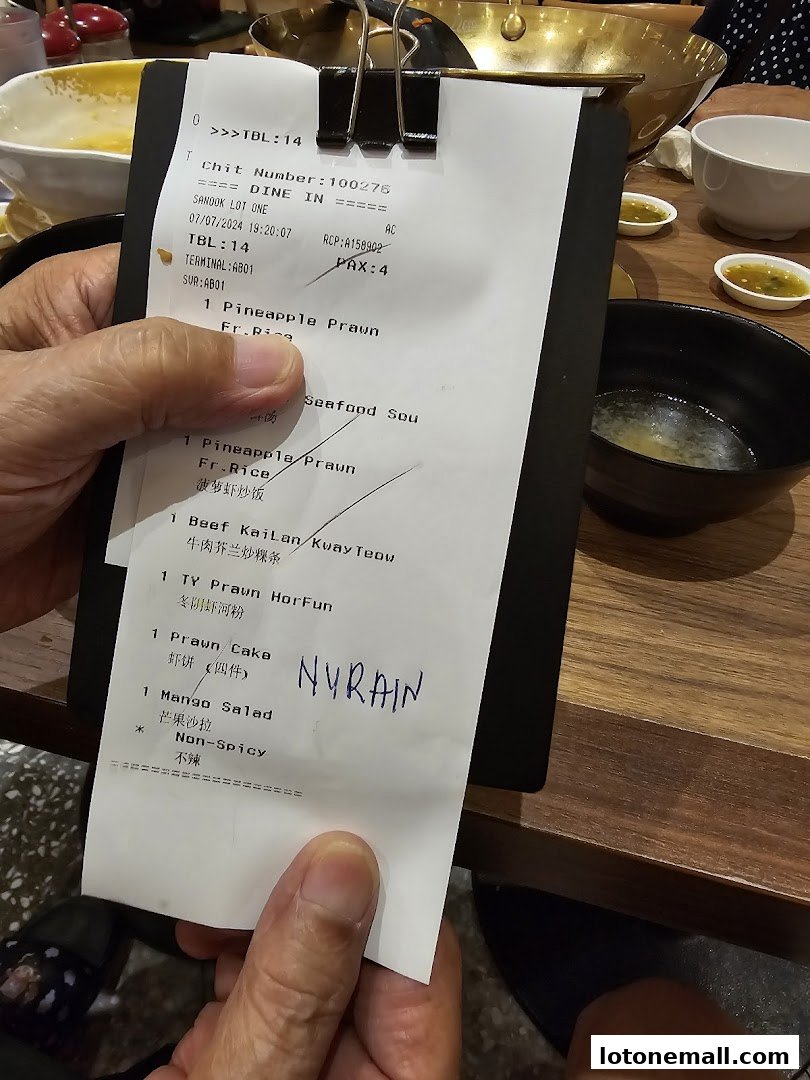 O
>>>TBL:14
T
Chit Number:100276
==== DINE IN =====
SANOOK LOT ONE
AC
07/07/2024 19:20:07
RCP:A158902
TBL:14
PAX:4
TERMINAL:AB01
SVR:AB01
1 Pineapple Prawn
Fr.Rice
Seafood Sou
鲜汤
1 Pineapple Prawn
Fr.Rice
菠萝虾炒饭
1 Beef KaiLan KwayTeow
牛肉芥兰炒粿条
1 TY Prawn HorFun
冬阴虾河粉
1 Prawn Cake
虾饼 (四件)
NYRAIN
1 Mango Salad
芒果沙拉
* Non-Spicy
不辣
====================
lotonemall.com